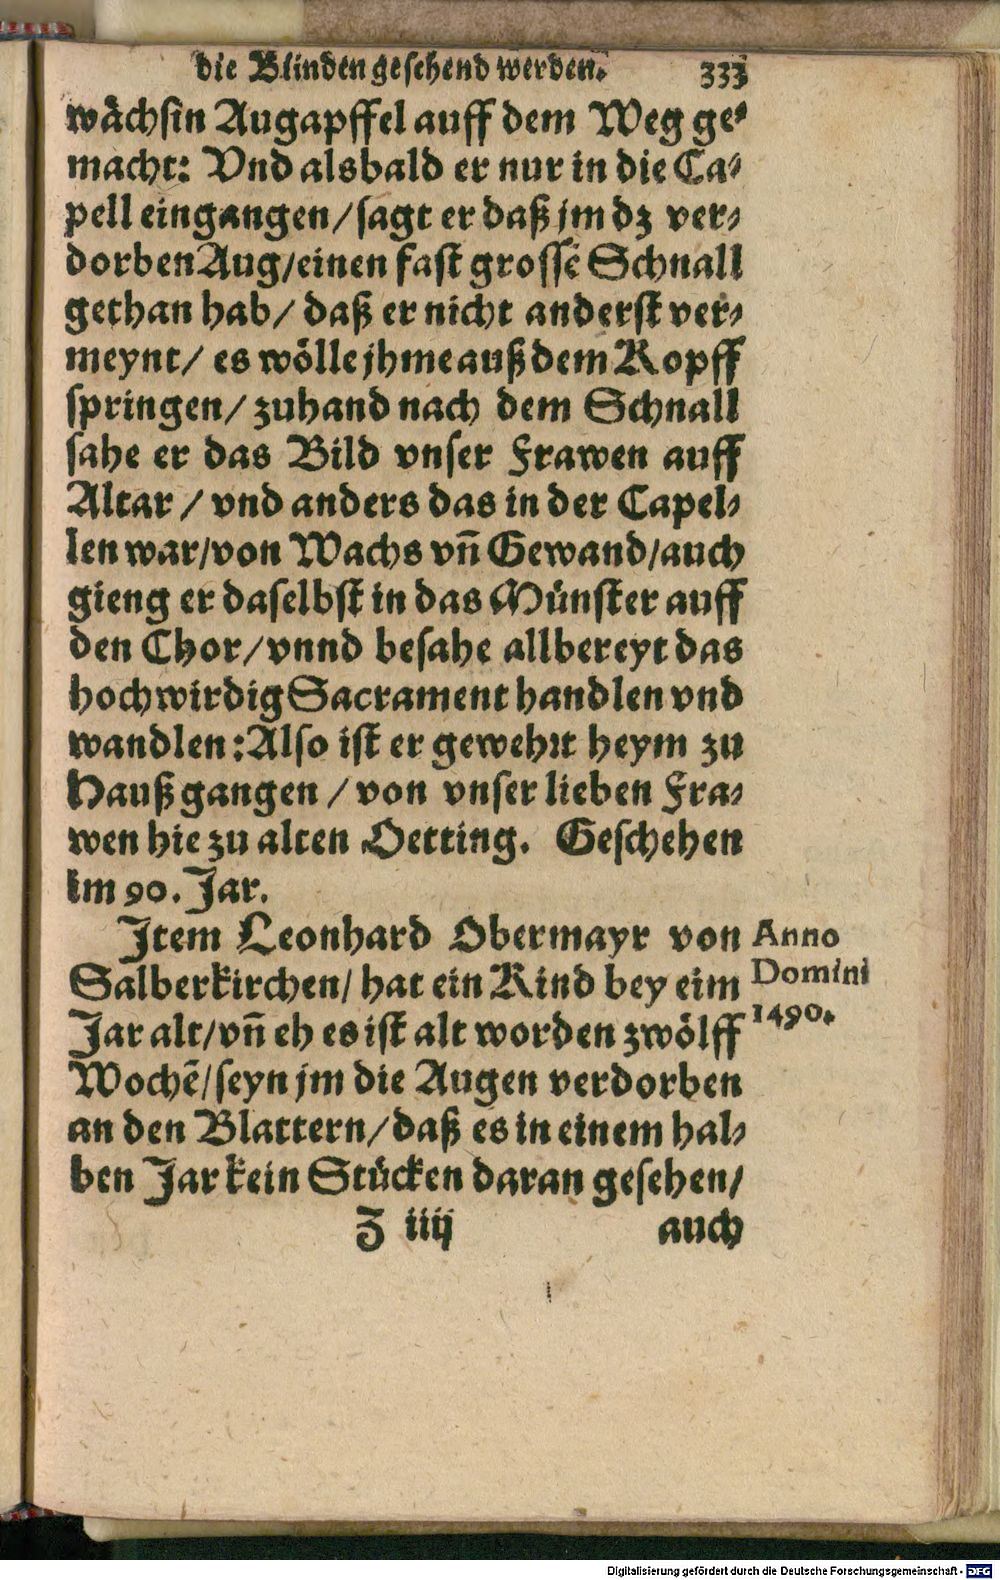 die Blinden gesehend werden. 333
wächsin Augapffel auff dem Weg ge⸗
macht: Vnd alsbald er nur in die Ca⸗
pell eingangen/ sagt er daß jm dz ver⸗
dorben Aug/ einen fast grossē Schnall
gethan hab/ daß er nicht anderst ver⸗
meynt/ es wölle jhme auß dem Kopff
springen/ zuhand nach dem Schnall
sahe er das Bild vnser Frawen auff
Altar / vnd anders das in der Capel⸗
len war/ von Wachs vn̄ Gewand/ auch
gieng er daselbst in das Münster auff
den Chor/ vnnd besahe allbereyt das
hochwirdig Sacrament handlen vnd
wandlen: Also ist er gewehrt heym zu
Hauß gangen / von vnser lieben Fra⸗
wen hie zu alten Oetting. Geschehen
im 90. Jar.
Jtem Leonhard Obermayr von
Salberkirchen/ hat ein Kind bey eim
Jar alt/ vn̄ eh es ist alt worden zwölff
Wochē/ seyn jm die Augen verdorben
an den Blattern/ daß es in einem hal⸗
ben Jar kein Stücken daran gesehen/
Anno
Domini
1490.
Z iiij auch
Digitalisierung gefördert durch die Deutsche Forschungsgemeinschaft - DFG